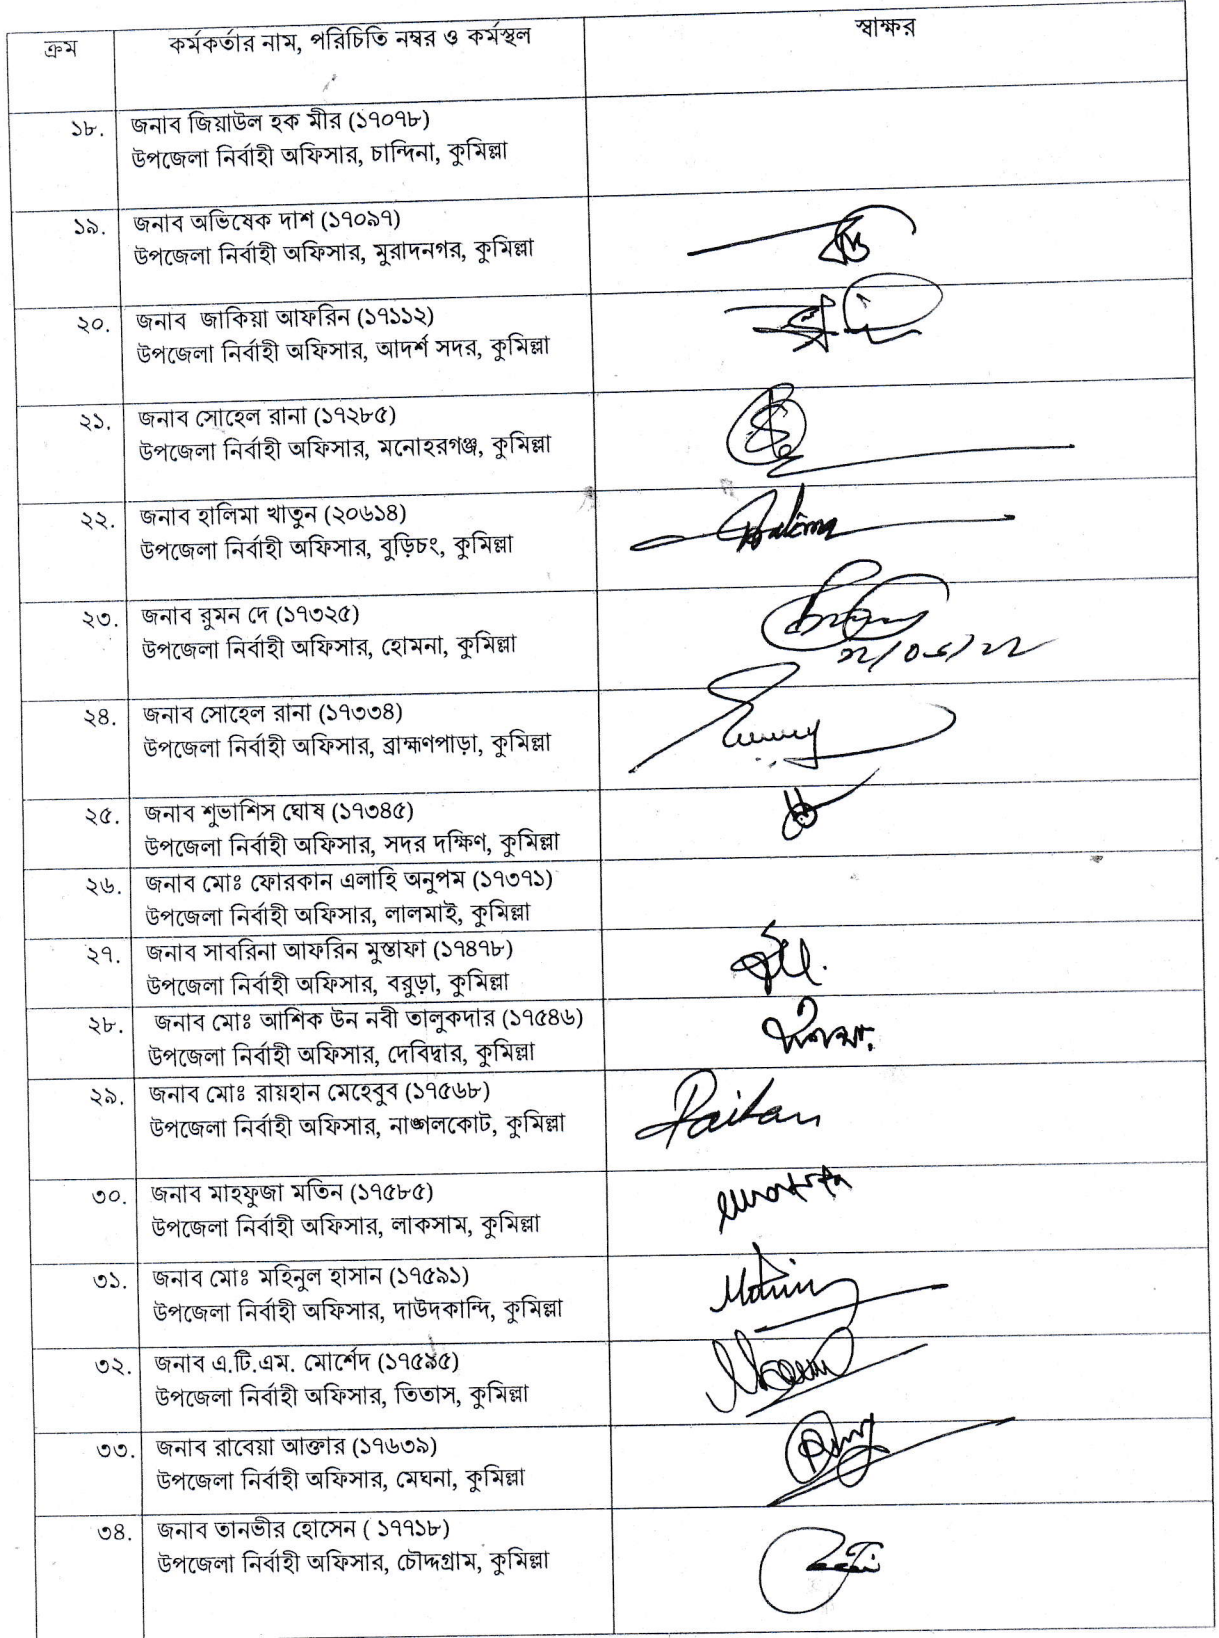 ক্রম কর্মকর্তার নাম, পরিচিতি নম্বর ও কর্মস্থল স্বাক্ষর
১৮. জনাব জিয়াউল হক মীর (১৭০৭৮)
উপজেলা নির্বাহী অফিসার, চান্দিনা, কুমিল্লা
১৯. জনাব অভিষেক দাশ (১৭০৯৭)
উপজেলা নির্বাহী অফিসার, মুরাদনগর, কুমিল্লা
২০. জনাব জাকিয়া আফরিন (১৭১১২)
উপজেলা নির্বাহী অফিসার, আদর্শ সদর, কুমিল্লা
২১. জনাব সোহেল রানা (১৭২৮৫)
উপজেলা নির্বাহী অফিসার, মনোহরগঞ্জ, কুমিল্লা
২২. জনাব হালিমা খাতুন (২০৬১৪)
উপজেলা নির্বাহী অফিসার, বুড়িচং, কুমিল্লা
Halima
২৩. জনাব রুমন দে (১৭৩২৫)
উপজেলা নির্বাহী অফিসার, হোমনা, কুমিল্লা
২৪. জনাব সোহেল রানা (১৭৩৩৪)
উপজেলা নির্বাহী অফিসার, ব্রাহ্মণপাড়া, কুমিল্লা
২৫. জনাব শুভাশিস ঘোষ (১৭৩৪৫)
উপজেলা নির্বাহী অফিসার, সদর দক্ষিণ, কুমিল্লা
২৬. জনাব মোঃ ফোরকান এলাহি অনুপম (১৭৩৭১)
উপজেলা নির্বাহী অফিসার, লালমাই, কুমিল্লা
২৭. জনাব সাবরিনা আফরিন মুস্তাফা (১৭৪৭৮)
উপজেলা নির্বাহী অফিসার, বরুড়া, কুমিল্লা
২৮. জনাব মোঃ আশিক উন নবী তালুকদার (১৭৫৪৬)
উপজেলা নির্বাহী অফিসার, দেবিদ্বার, কুমিল্লা
২৯. জনাব মোঃ রায়হান মেহেবুব (১৭৫৬৮)
উপজেলা নির্বাহী অফিসার, নাঙ্গলকোট, কুমিল্লা
Raihan
৩০. জনাব মাহফুজা মতিন (১৭৫৮৫)
উপজেলা নির্বাহী অফিসার, লাকসাম, কুমিল্লা
৩১. জনাব মোঃ মহিনুল হাসান (১৭৫৯১)
উপজেলা নির্বাহী অফিসার, দাউদকান্দি, কুমিল্লা
৩২. জনাব এ.টি.এম. মোর্শেদ (১৭৫৯৫)
উপজেলা নির্বাহী অফিসার, তিতাস, কুমিল্লা
৩৩. জনাব রাবেয়া আক্তার (১৭৬৩৯)
উপজেলা নির্বাহী অফিসার, মেঘনা, কুমিল্লা
৩৪. জনাব তানভীর হোসেন ( ১৭৭১৮)
উপজেলা নির্বাহী অফিসার, চৌদ্দগ্রাম, কুমিল্লা